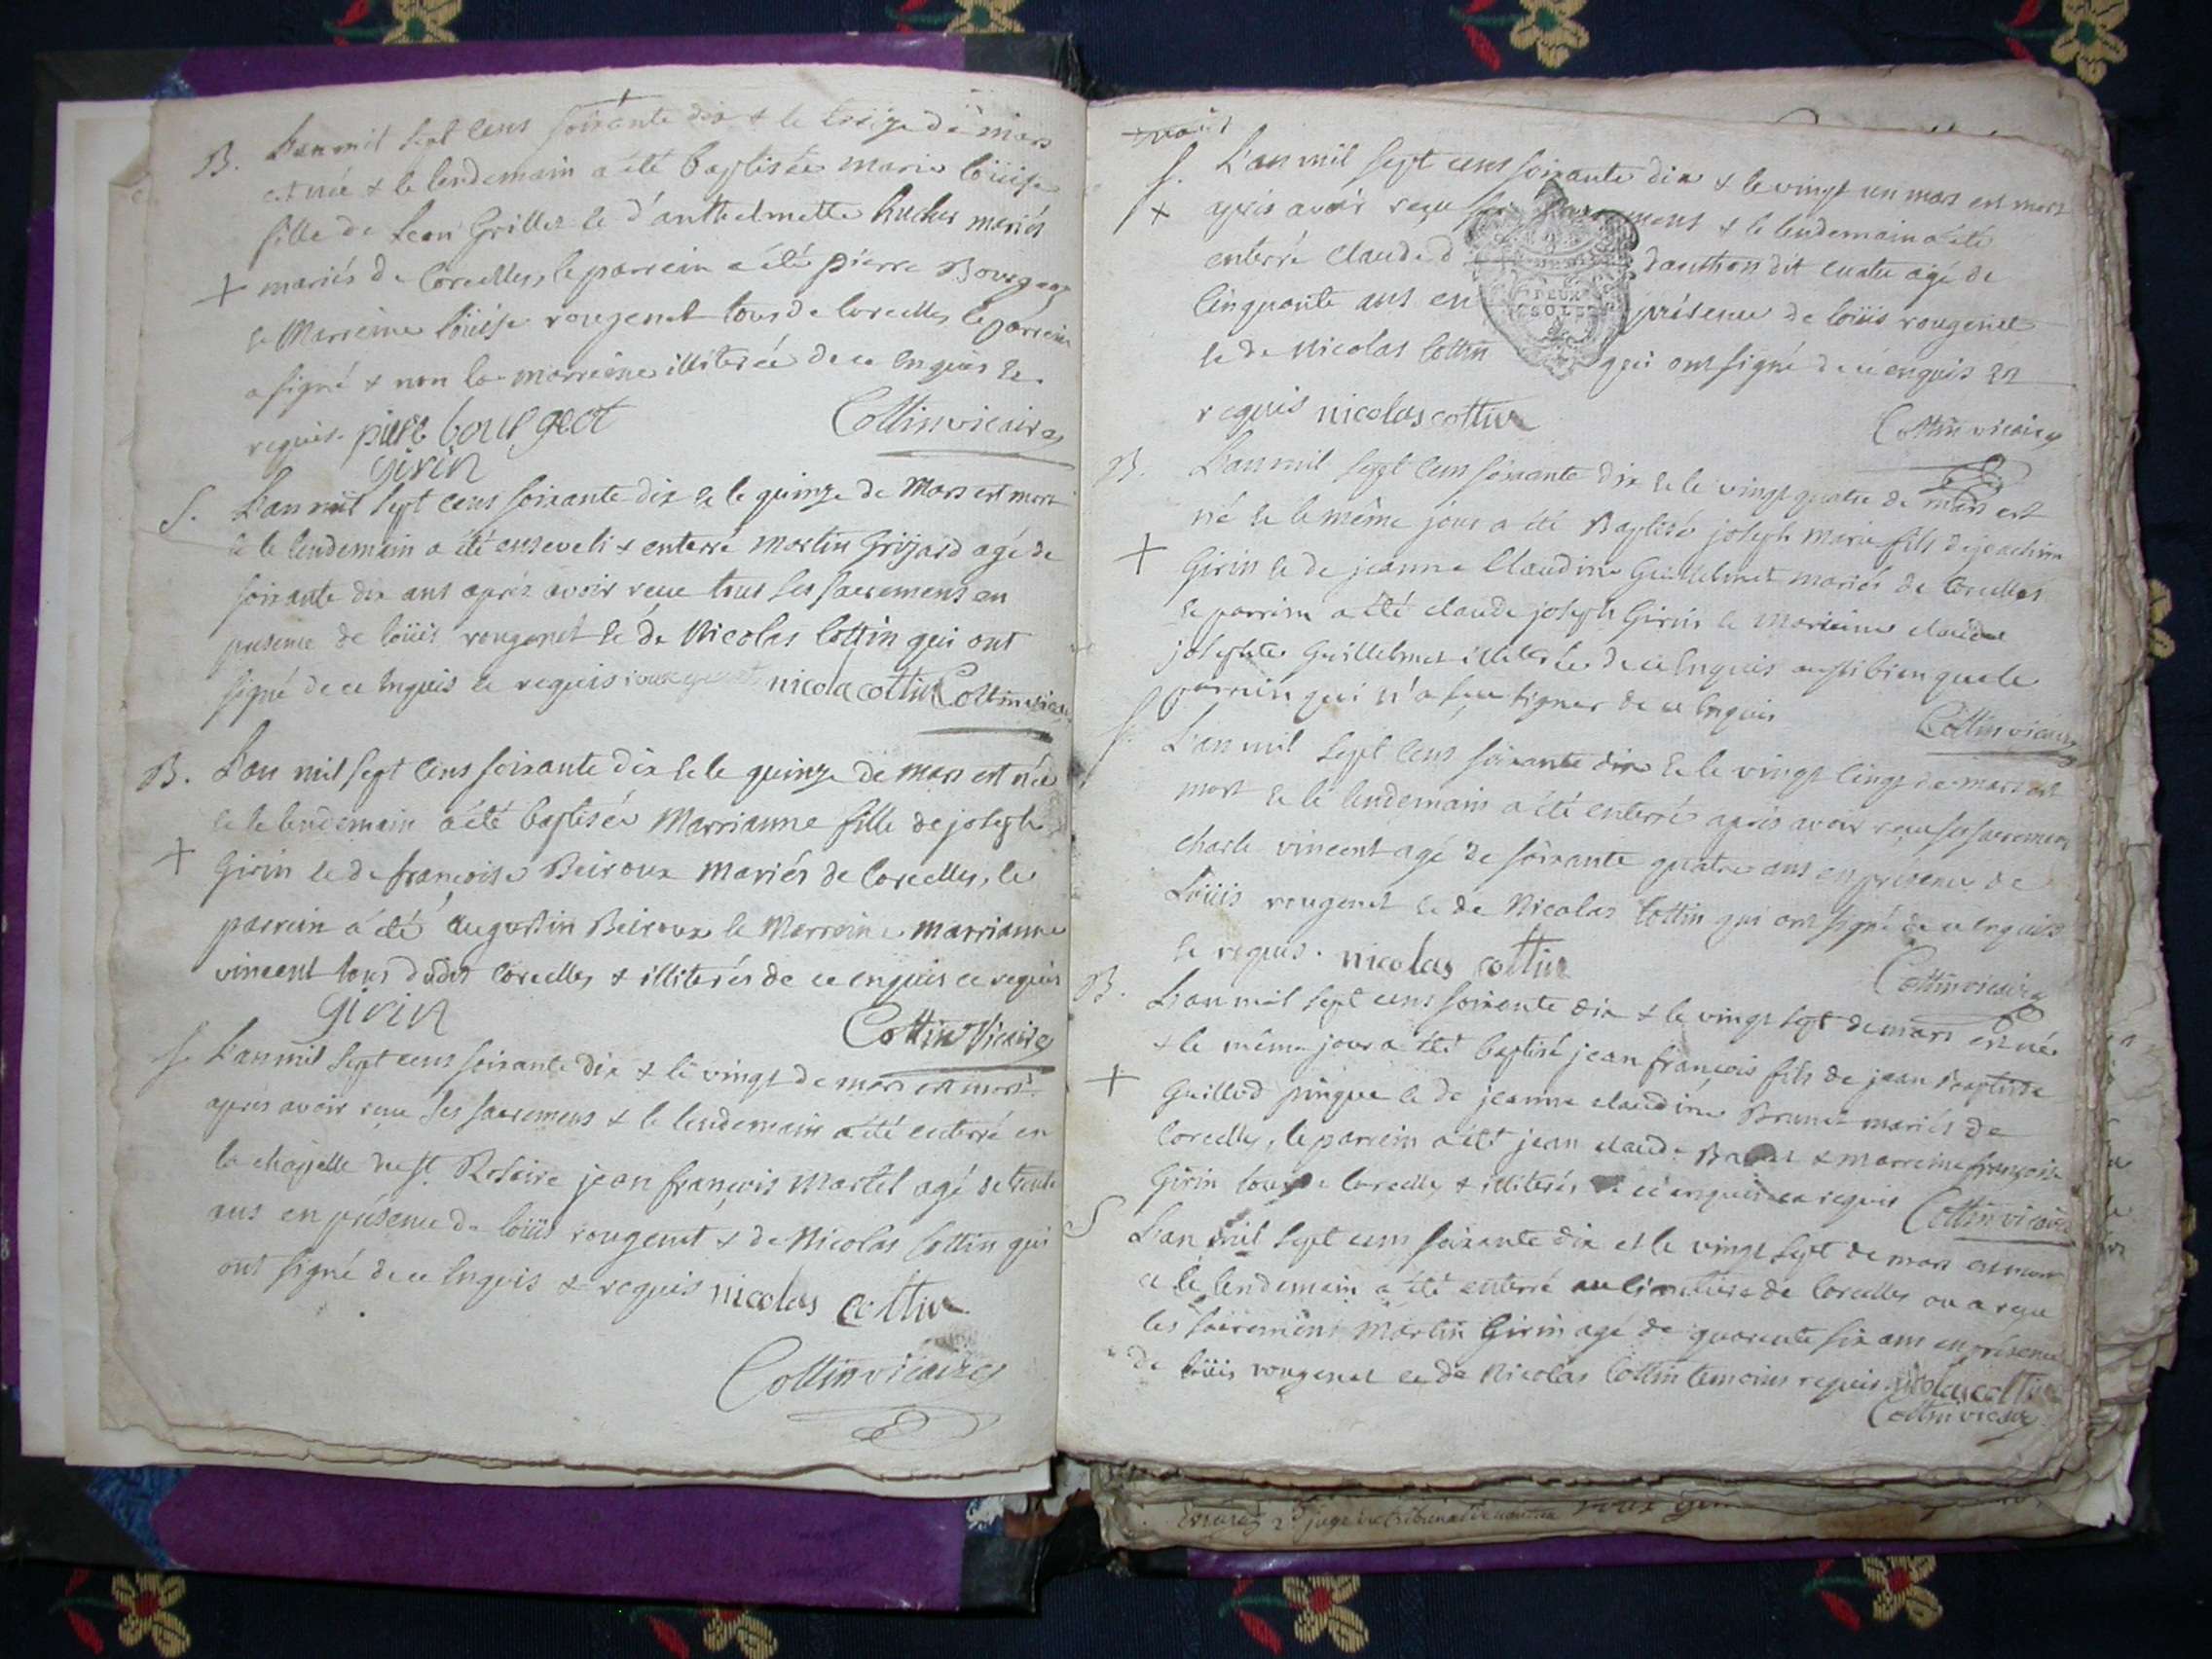 B. L'an mil sept cens soixante dix & le treize de mars
est née & le lendemain a été baptisée marie loüise
fille de Jean Grillet & d'anthelmette mariés
+ mariés de Corcelles, le parrein a été pierre Bourgeot
& Marreine loüise rougenet tous de Corcelles le parrein
a signé & non la marreine illiterée de ce enquis &
requis. piere bourgeot Cottin vicaire
girin
S. L'an mil sept cens soixante dix & le quinze de Mars est mort
& le lendemain a été enseveli & enterré Martin Grizard agé de
soixante dix ans après avoir reçu tous ses sacremens en
presence de loüis rougenet & de Nicolas Cottin qui ont
signé de ce enquis & requis rougenet nicola cottin Cottin vicaire
B. L'an mil sept cens soixante dix & le quinze de mars est née
& le lendemain a été baptisée Marrianne fille de joseph
+ Girin & de françoise Beiroux mariés de Corcelles, le
parrein a été augustin Beiroux & Marreine marrianne
vincent tous dudit Corcelles & illiterés de ce enquis & requis
girin Cottin Vicaire
S. L'an mil sept cens soixante dix & le vingt de mars est mort
après avoir reçu ses sacremens & le lendemain a été enterré en
la chapelle du St. Rosaire jean françois Martel agé de trente
ans en présence de loüis rougenet & de Nicolas Cottin qui
ont signé de ce enquis & requis nicolas cottin
Cottin vicaire
S. L'an mil sept cens soixante dix & le vingt un mars est mort
+ après avoir reçu & le lendemain a été
enterré claude danthon dit agé de
Cinquante ans en présence de loüis rougenet
DEUX
SOLS
& de Nicolas Cottin qui ont signé de ce enquis &
requis nicolas cottin Cottin vicaire
B. L'an mil sept cens soixante dix & le vingt quatre de mars est
né & le même jour a été Baptisé joseph marie fils de joachim
+ Girin & de jeanne Claudine Guillelmet mariés de Corcelles
le parrein a été claude joseph Girin & marreine claude
josephte Guillelmet illiterée de ce enquis aussi bien que le
parrein qui n'a sçu signer de ce enquis Cottin vicaire
S. L'an mil sept cens soixante dix & le vingt cinq de mars est
mort & le lendemain a été enterré après avoir reçu ses sacremens
charle vincent agé de soixante quatre ans en présence de
Loüis rougenet & de Nicolas Cottin qui ont signé de ce enquis
& requis. nicolas cottin Cottin vicaire
B. L'an mil sept cens soixante dix & le vingt sept de mars est né
& le même jour a été baptisé jean françois fils de jean baptiste
+ Guillod & de jeanne claudine Brunet mariés de
Corcelles, le parrein a été jean claude & marreine françoise
Girin tous de Corcelles & illiterés de ce enquis & requis Cottin vicaire
S L'an mil sept cens soixante dix et le vingt sept de mars est mort
& le lendemain a été enterré au cimetiere de Corcelles ou a reçu
les sacremens Martin Girin agé de quarente six ans en présence
de loüis rougenet & de Nicolas Cottin temoins requis. nicolas cottin
Cottin vicaire